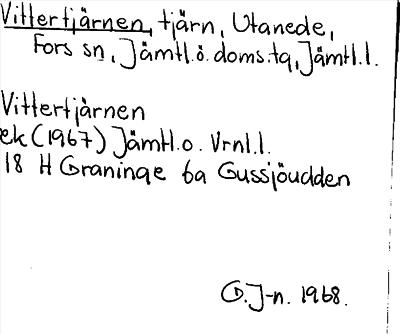 Vittertjärnen, tjärn, Utanede,
Fors sn, Jämtl.ö.doms.tg, Jämtl.l.
Vittertjärnen
ek (1967) Jämtl.o. Vrnl.l.
18 H Graninge 6a Gussjöudden
G.J-n. 1968.